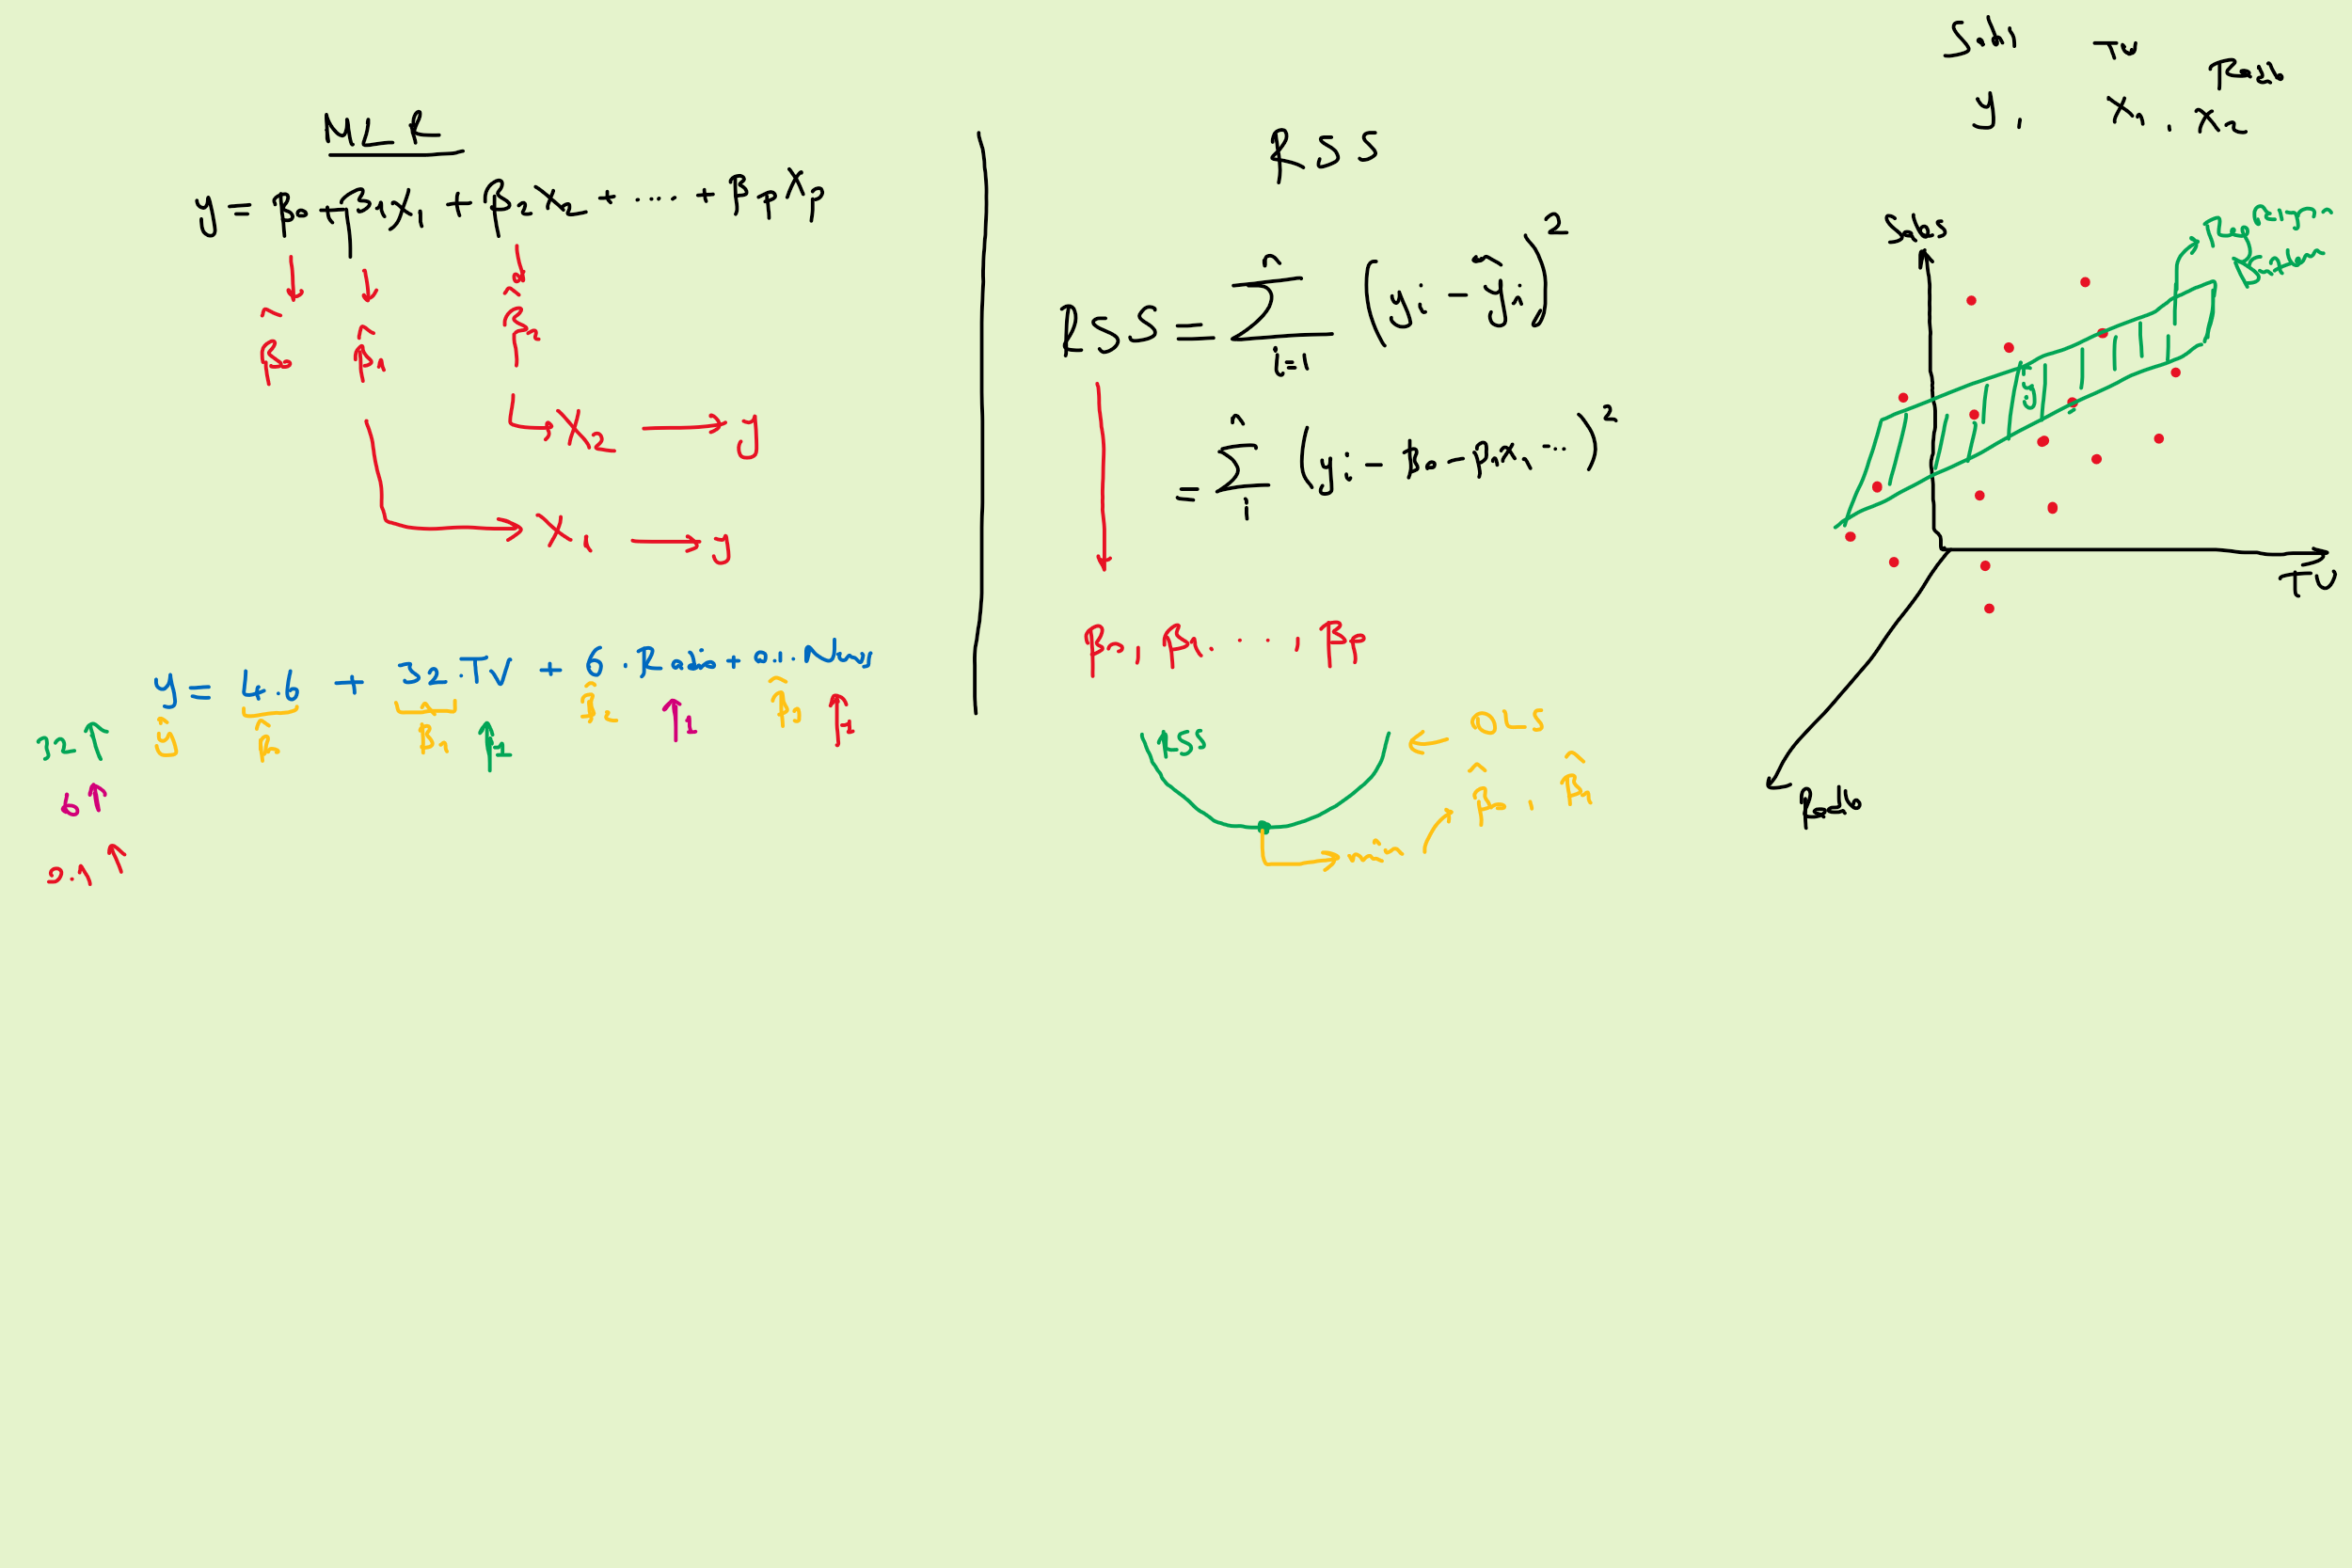 MLR
y = β₀ + β₁X₁ + β₂X₂ + .... + βₚXₚ
β̂₀ β̂₁ β̂₂
X₂ → y
X₁ → y
y = 4.6 + 32.TV + 6.Radio + 0.1.News
ŷ β̂₀ β̂₁ ↑1 β̂₂ ↑1 β̂₃ ↑1
32 ↑
6 ↑
0.1 ↑
RSS
RSS = Σ i=1 n (yi - ŷi)²
= Σ i n (yi - β₀ - β₁x₁ ...)²
β₀, β₁, . . , βp
RSS ← OLS
min β̂₀, β̂₁
TV Radio
y, X₁, X₂
Sales
Regression
ŷ
TV
Radio